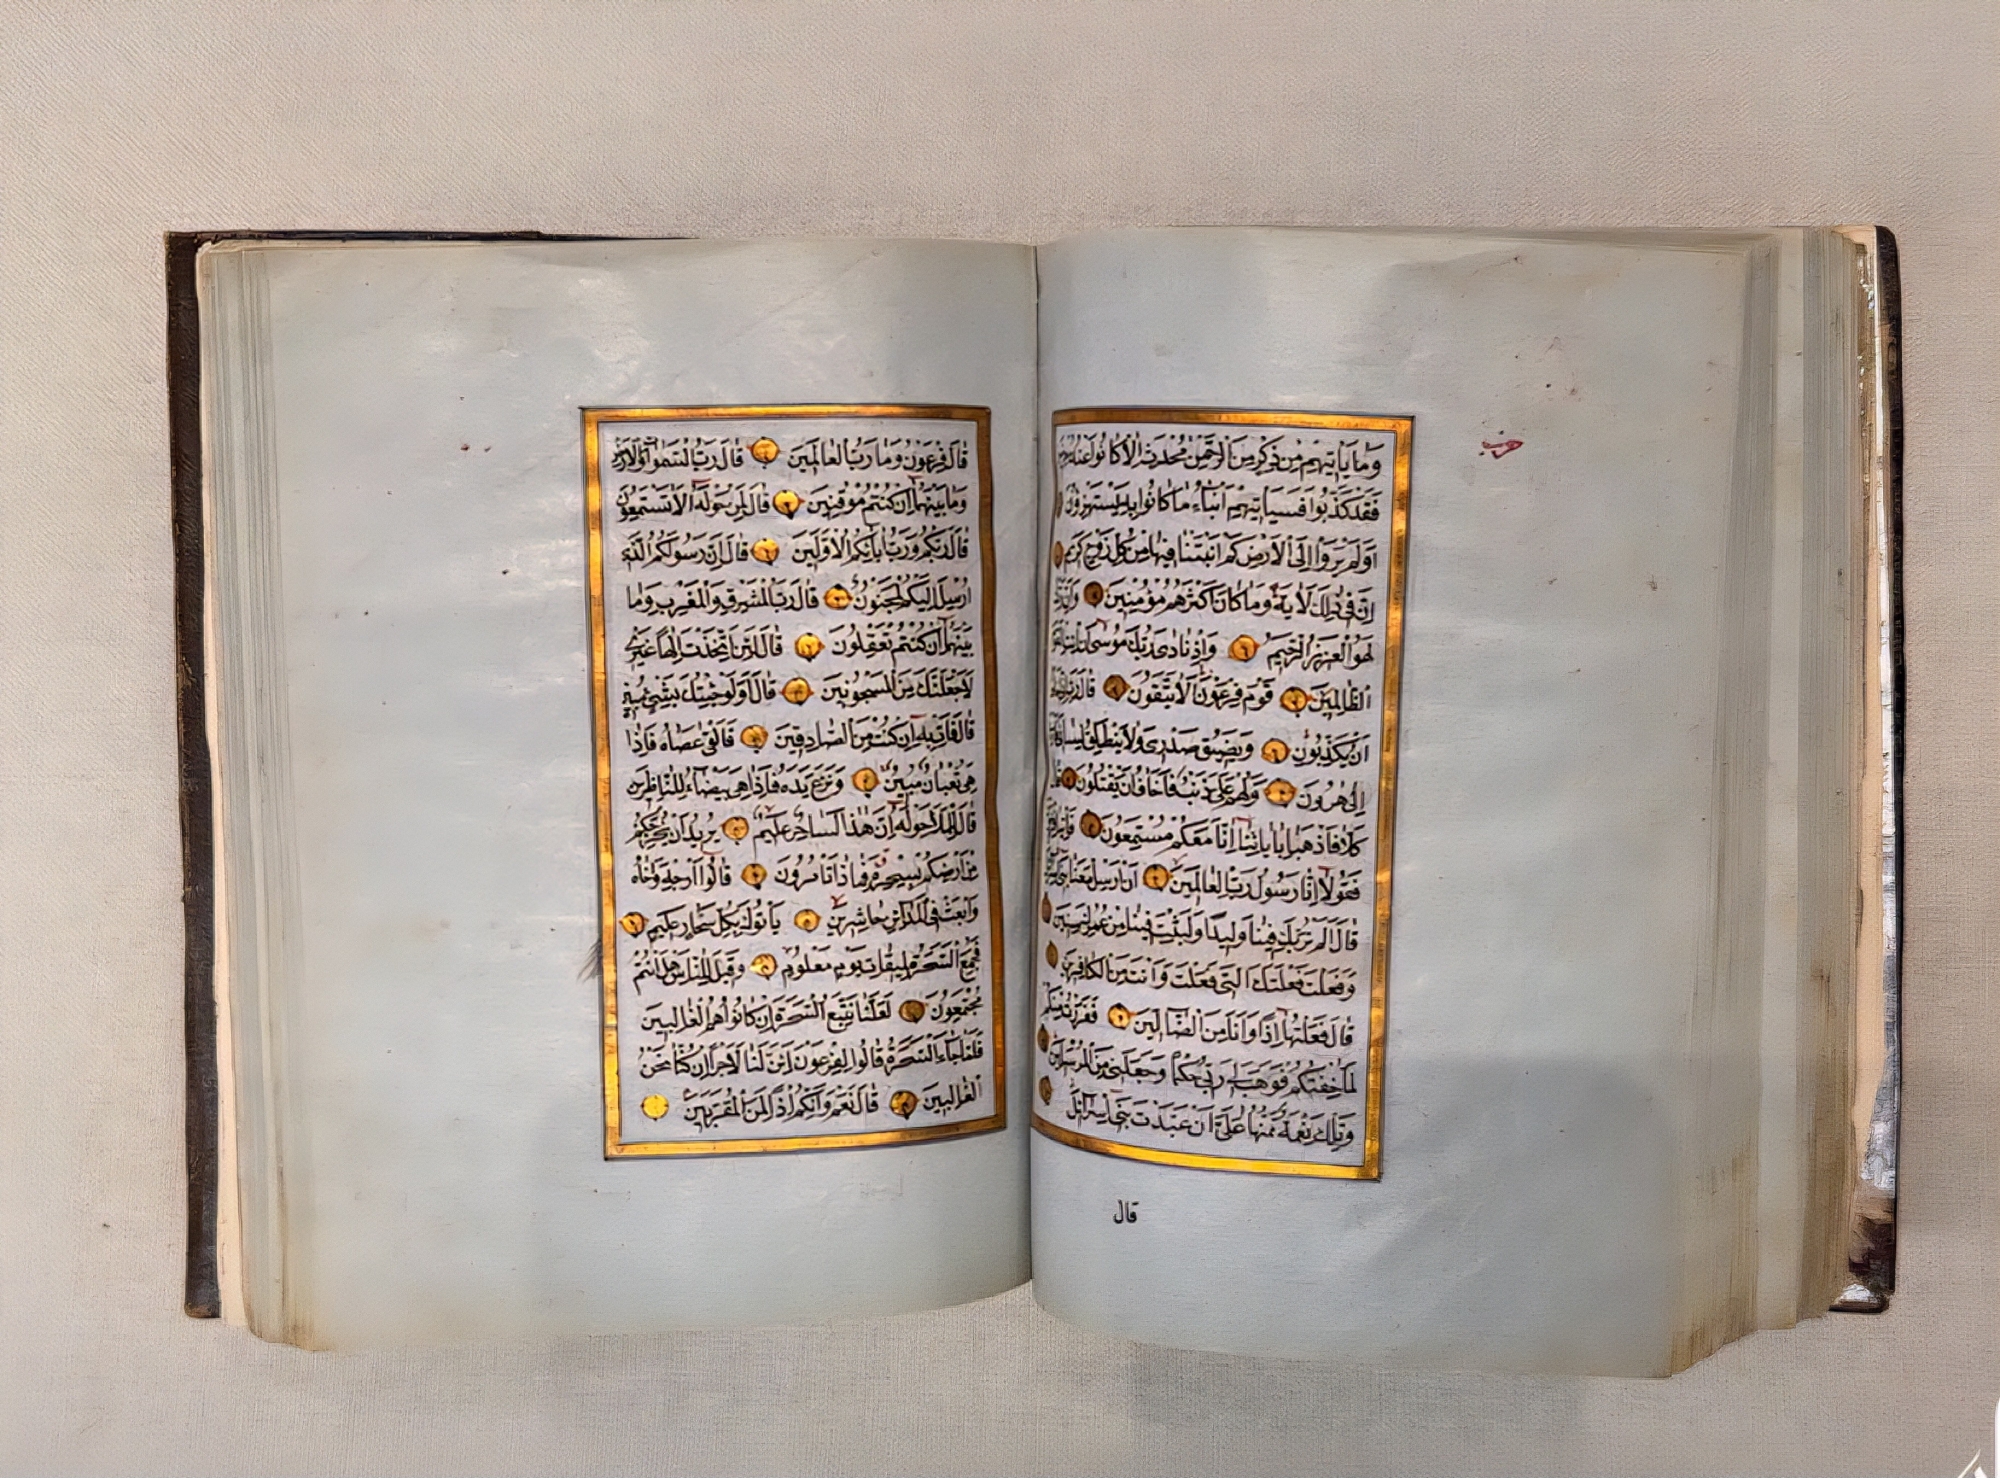 وَمَا يَأْتِيهِمْ مِنْ ذِكْرٍ مِنَ الرَّحْمٰنِ مُحْدَثٍ اِلَّا كَانُوا عَنْهُ مُعْرِضِينَ
فَقَدْ كَذَّبُوا فَسَيَأْتِيهِمْ اَنْبَاءُ مَا كَانُوا بِهِ يَسْتَهْزِؤُنَ
اَوَلَمْ يَرَوْا اِلَى الْاَرْضِ كَمْ اَنْبَتْنَا فِيهَا مِنْ كُلِّ زَوْجٍ كَرِيمٍ
اِنَّ فِى ذٰلِكَ لَاٰيَةً وَمَا كَانَ اَكْثَرُهُمْ مُؤْمِنِينَ وَاِنَّ رَبَّكَ
لَهُوَ الْعَزِيزُ الرَّحِيمُ وَاِذْ نَادٰى رَبُّكَ مُوسٰى اَنِ ائْتِ الْقَوْمَ
الظَّالِمِينَ قَوْمَ فِرْعَوْنَ اَلَا يَتَّقُونَ قَالَ رَبِّ اِنِّى اَخَافُ
اَنْ يُكَذِّبُونِ وَيَضِيقُ صَدْرِى وَلَا يَنْطَلِقُ لِسَانِى فَاَرْسِلْ
اِلٰى هٰرُونَ وَلَهُمْ عَلَىَّ ذَنْبٌ فَاَخَافُ اَنْ يَقْتُلُونِ قَالَ
كَلَّا فَاذْهَبَا بِاٰيَاتِنَا اِنَّا مَعَكُمْ مُسْتَمِعُونَ فَأْتِيَا فِرْعَوْنَ
فَقُولَا اِنَّا رَسُولُ رَبِّ الْعَالَمِينَ اَنْ اَرْسِلْ مَعَنَا بَنِى اِسْرَائِلَ
قَالَ اَلَمْ نُرَبِّكَ فِينَا وَلِيدًا وَلَبِثْتَ فِينَا مِنْ عُمُرِكَ سِنِينَ
وَفَعَلْتَ فَعْلَتَكَ الَّتِى فَعَلْتَ وَاَنْتَ مِنَ الْكَافِرِينَ
قَالَ فَعَلْتُهَا اِذًا وَاَنَا مِنَ الضَّالِّينَ فَفَرَرْتُ مِنْكُمْ
لَمَّا خِفْتُكُمْ فَوَهَبَ لِى رَبِّى حُكْمًا وَجَعَلَنِى مِنَ الْمُرْسَلِينَ
وَتِلْكَ نِعْمَةٌ تَمُنُّهَا عَلَىَّ اَنْ عَبَّدْتَ بَنِى اِسْرَائِلَ
قال
قَالَ فِرْعَوْنُ وَمَا رَبُّ الْعَالَمِينَ قَالَ رَبُّ السَّمٰوَاتِ وَالْاَرْضِ
وَمَا بَيْنَهُمَا اِنْ كُنْتُمْ مُوقِنِينَ قَالَ لِمَنْ حَوْلَهُ اَلَا تَسْتَمِعُونَ
قَالَ رَبُّكُمْ وَرَبُّ اٰبَائِكُمُ الْاَوَّلِينَ قَالَ اِنَّ رَسُولَكُمُ الَّذِى
اُرْسِلَ اِلَيْكُمْ لَمَجْنُونٌ قَالَ رَبُّ الْمَشْرِقِ وَالْمَغْرِبِ وَمَا
بَيْنَهُمَا اِنْ كُنْتُمْ تَعْقِلُونَ قَالَ لَئِنِ اتَّخَذْتَ اِلٰهًا غَيْرِى
لَاَجْعَلَنَّكَ مِنَ الْمَسْجُونِينَ قَالَ اَوَلَوْ جِئْتُكَ بِشَىْءٍ مُبِينٍ
قَالَ فَأْتِ بِهِ اِنْ كُنْتَ مِنَ الصَّادِقِينَ فَاَلْقٰى عَصَاهُ فَاِذَا
هِىَ ثُعْبَانٌ مُبِينٌ وَنَزَعَ يَدَهُ فَاِذَا هِىَ بَيْضَاءُ لِلنَّاظِرِينَ
قَالَ لِلْمَلَاِ حَوْلَهُ اِنَّ هٰذَا لَسَاحِرٌ عَلِيمٌ يُرِيدُ اَنْ يُخْرِجَكُمْ
مِنْ اَرْضِكُمْ بِسِحْرِهِ فَمَاذَا تَأْمُرُونَ قَالُوا اَرْجِهْ وَاَخَاهُ
وَابْعَثْ فِى الْمَدَائِنِ حَاشِرِينَ يَأْتُوكَ بِكُلِّ سَحَّارٍ عَلِيمٍ
فَجُمِعَ السَّحَرَةُ لِمِيقَاتِ يَوْمٍ مَعْلُومٍ وَقِيلَ لِلنَّاسِ هَلْ اَنْتُمْ
مُجْتَمِعُونَ لَعَلَّنَا نَتَّبِعُ السَّحَرَةَ اِنْ كَانُوا هُمُ الْغَالِبِينَ
فَلَمَّا جَاءَ السَّحَرَةُ قَالُوا لِفِرْعَوْنَ اَئِنَّ لَنَا لَاَجْرًا اِنْ كُنَّا نَحْنُ
الْغَالِبِينَ قَالَ نَعَمْ وَاِنَّكُمْ اِذًا لَمِنَ الْمُقَرَّبِينَ